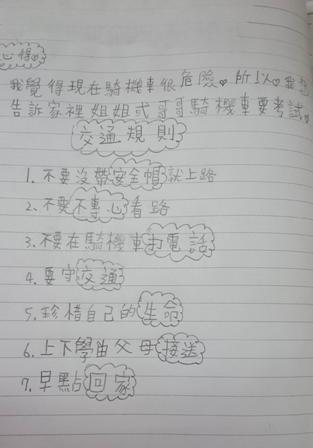 心得
我覺得現在騎機車很危險。所以。我想
告訴家裡姐姐或哥哥騎機車要考試。
交通規則
1. 不要沒帶安全帽就上路
2. 不要不專心看路
3. 不要在騎機車打電話
4. 要守交通
5. 珍惜自己的生命
6. 上下學由父母接送
7. 早點回家